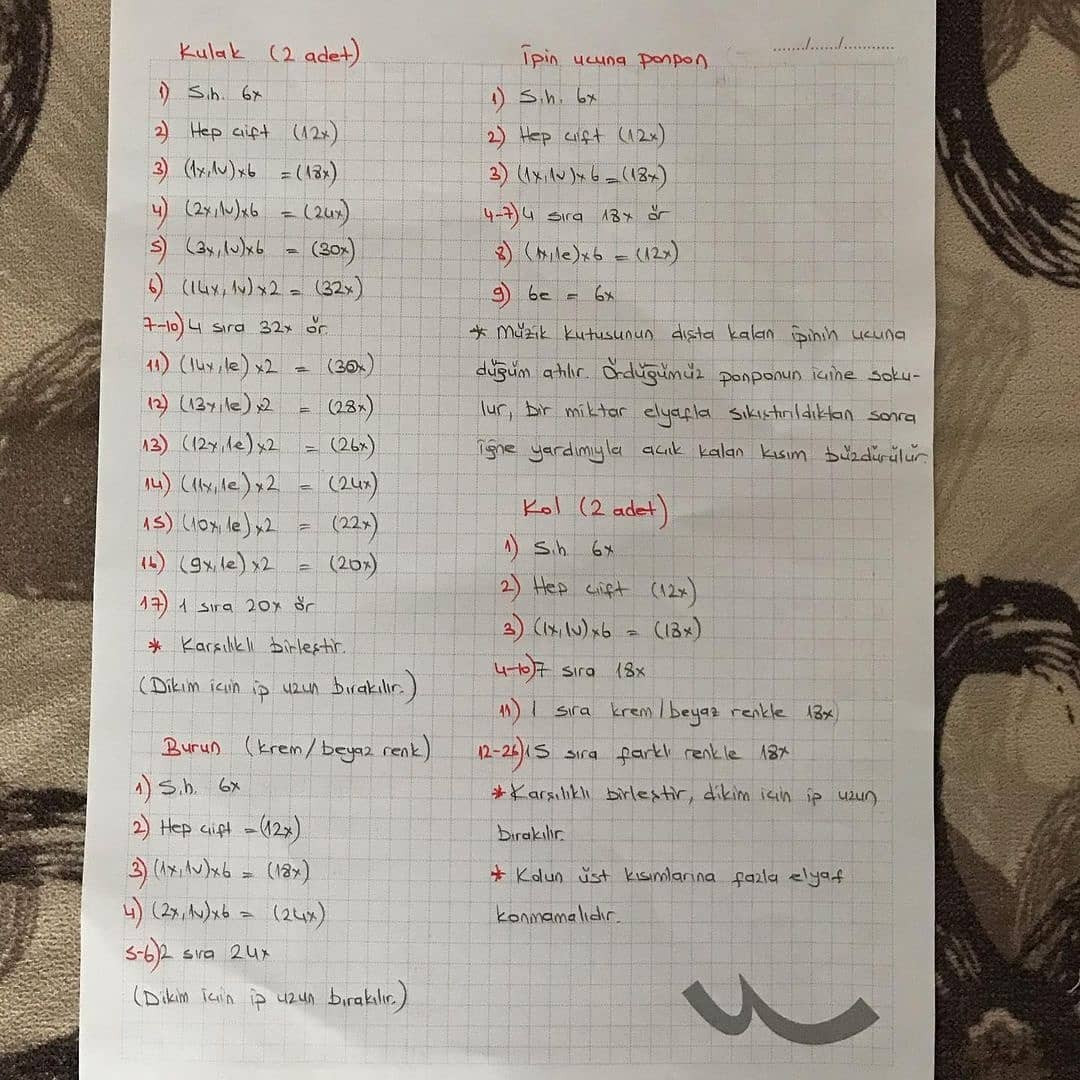 Kulak (2 adet)
1) S.h. 6x
2) Hep çift (12x)
3) (1x,1v)x6 = (18x)
4) (2x,1v)x6 = (24x)
5) (3x,1v)x6 = (30x)
6) (14x,1v)x2 = (32x)
7-10) 4 sıra 32x ör
11) (14x,1e)x2 = (30x)
12) (13x,1e)x2 = (28x)
13) (12x,1e)x2 = (26x)
14) (11x,1e)x2 = (24x)
15) (10x,1e)x2 = (22x)
16) (9x,1e)x2 = (20x)
17) 1 sıra 20x ör
* Karşılıklı birleştir.
(Dikim için ip uzun bırakılır.)
Burun (krem/beyaz renk)
1) S.h. 6x
2) Hep çift = (12x)
3) (1x,1v)x6 = (18x)
4) (2x,1v)x6 = (24x)
5-6) 2 sıra 24x
(Dikim için ip uzun bırakılır.)
...../...../..........
İpin ucuna ponpon
1) S.h. 6x
2) Hep çift (12x)
3) (1x,1v)x6 = (18x)
4-7) 4 sıra 18x ör
8) (1x,1e)x6 = (12x)
9) 6e = 6x
* Müzik kutusunun dışta kalan ipinin ucuna
düğüm atılır. Ördüğümüz ponponun içine soku-
lur, bir miktar elyafla sıkıştırıldıktan sonra
iğne yardımıyla açık kalan kısım büzdürülür.
Kol (2 adet)
1) S.h 6x
2) Hep çift (12x)
3) (1x,1v)x6 = (18x)
4-10) 7 sıra 18x
11) 1 sıra krem/beyaz renkle 18x
12-26) 15 sıra farklı renkle 18x
* Karşılıklı birleştir, dikim için ip uzun
bırakılır.
* Kolun üst kısımlarına fazla elyaf
konmamalıdır.